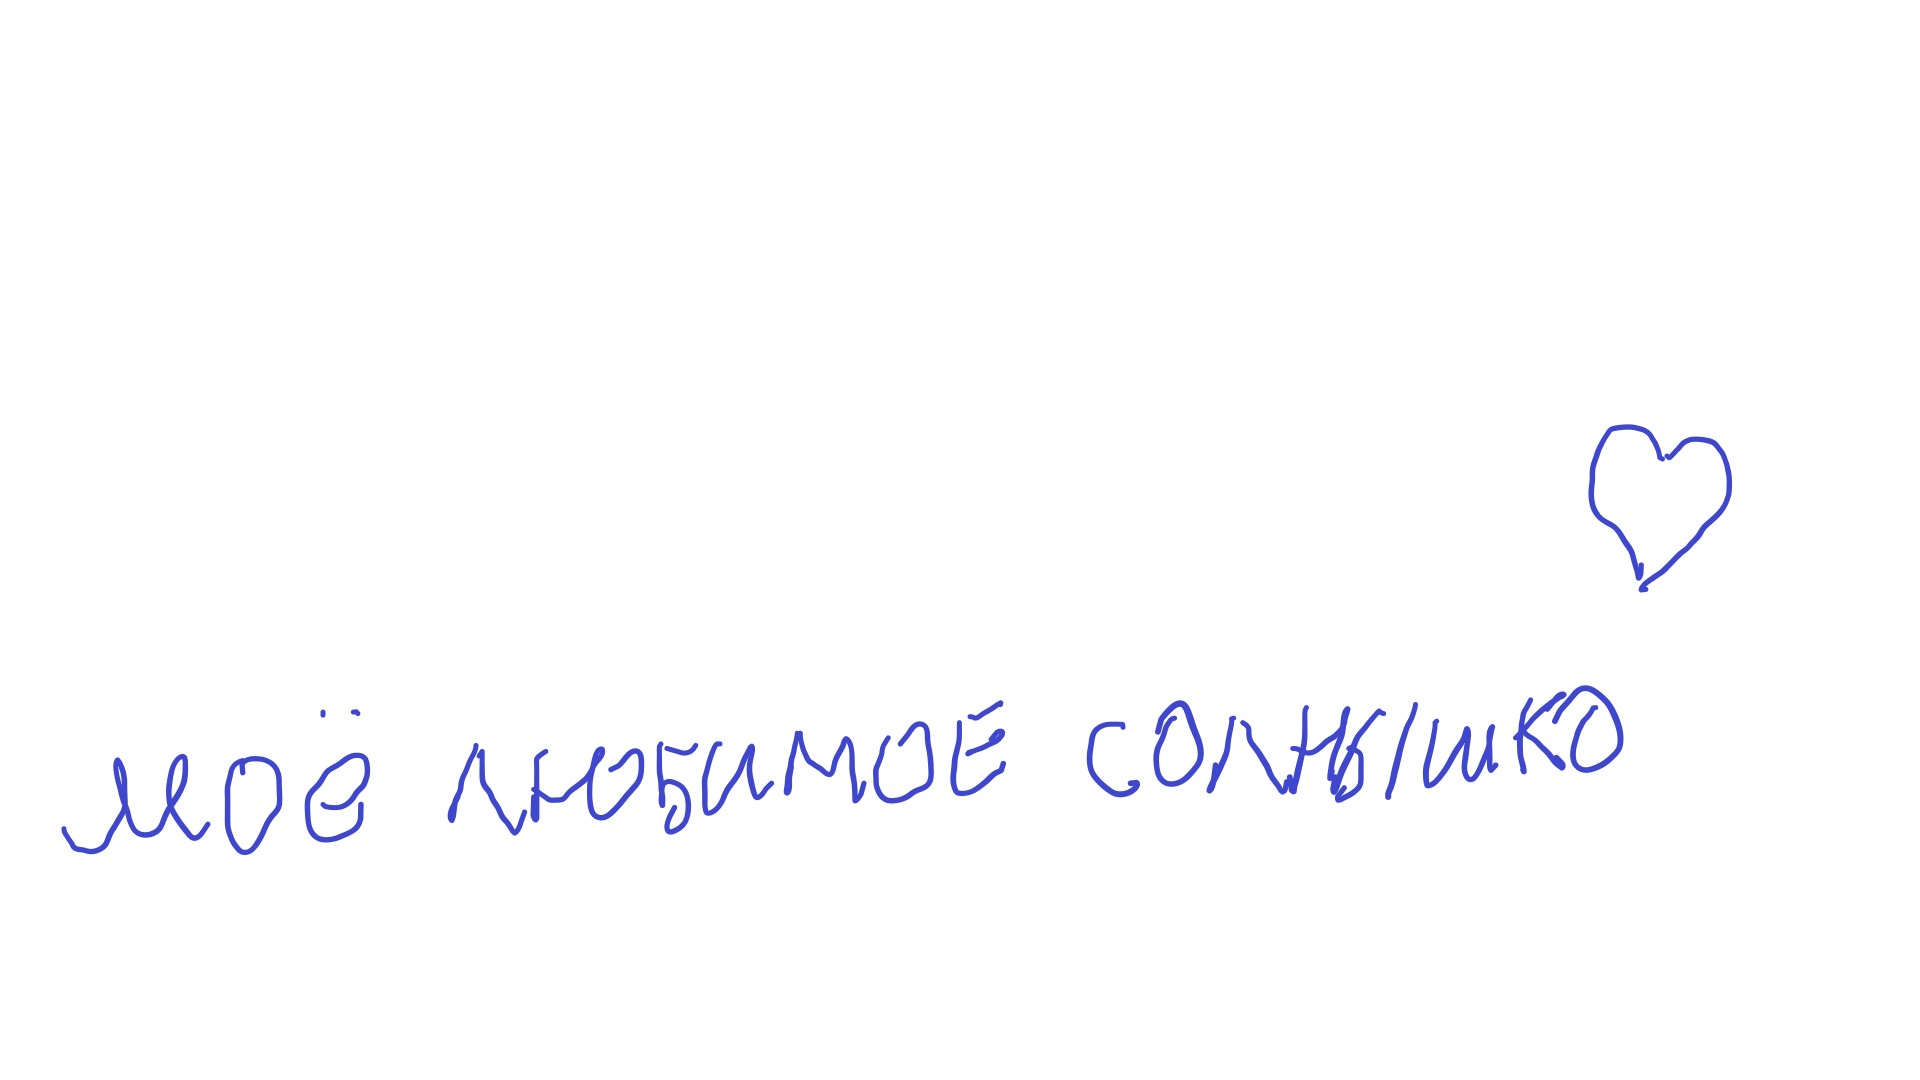 моё любимое солнышко